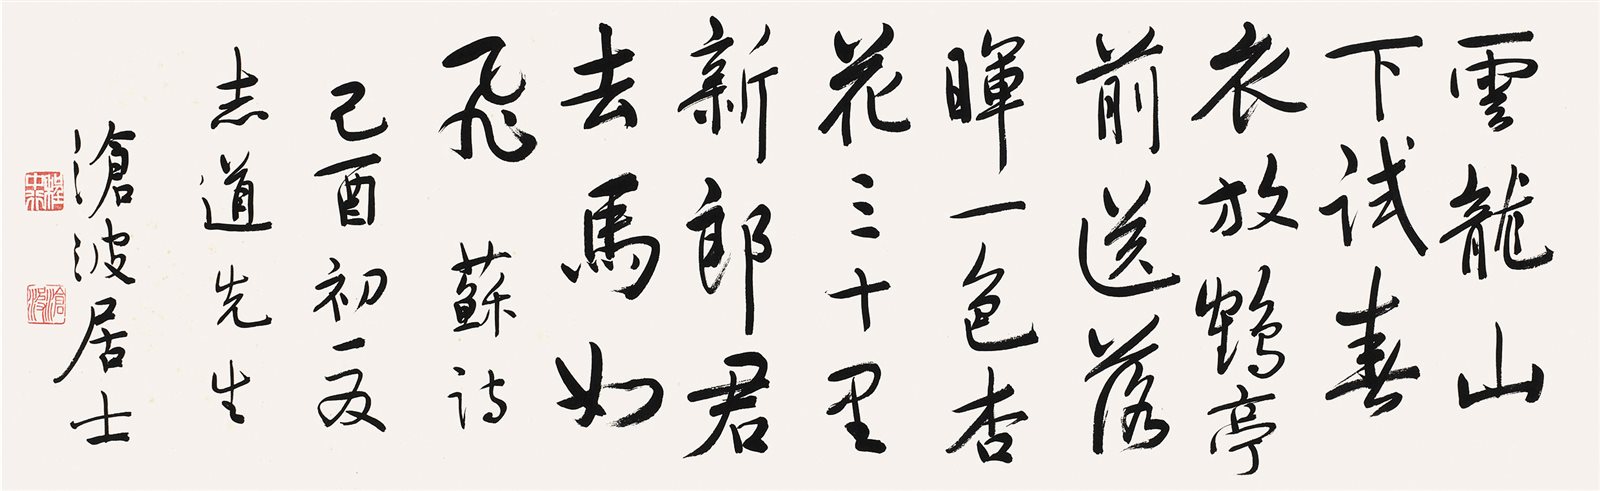 雲龍山
下試春
衣放鶴亭
前送落
暉一色杏
花三十里
新郎君
去馬如
飛 蘇詩
己酉初夏
志道先生
滄波居士
程中行
滄波